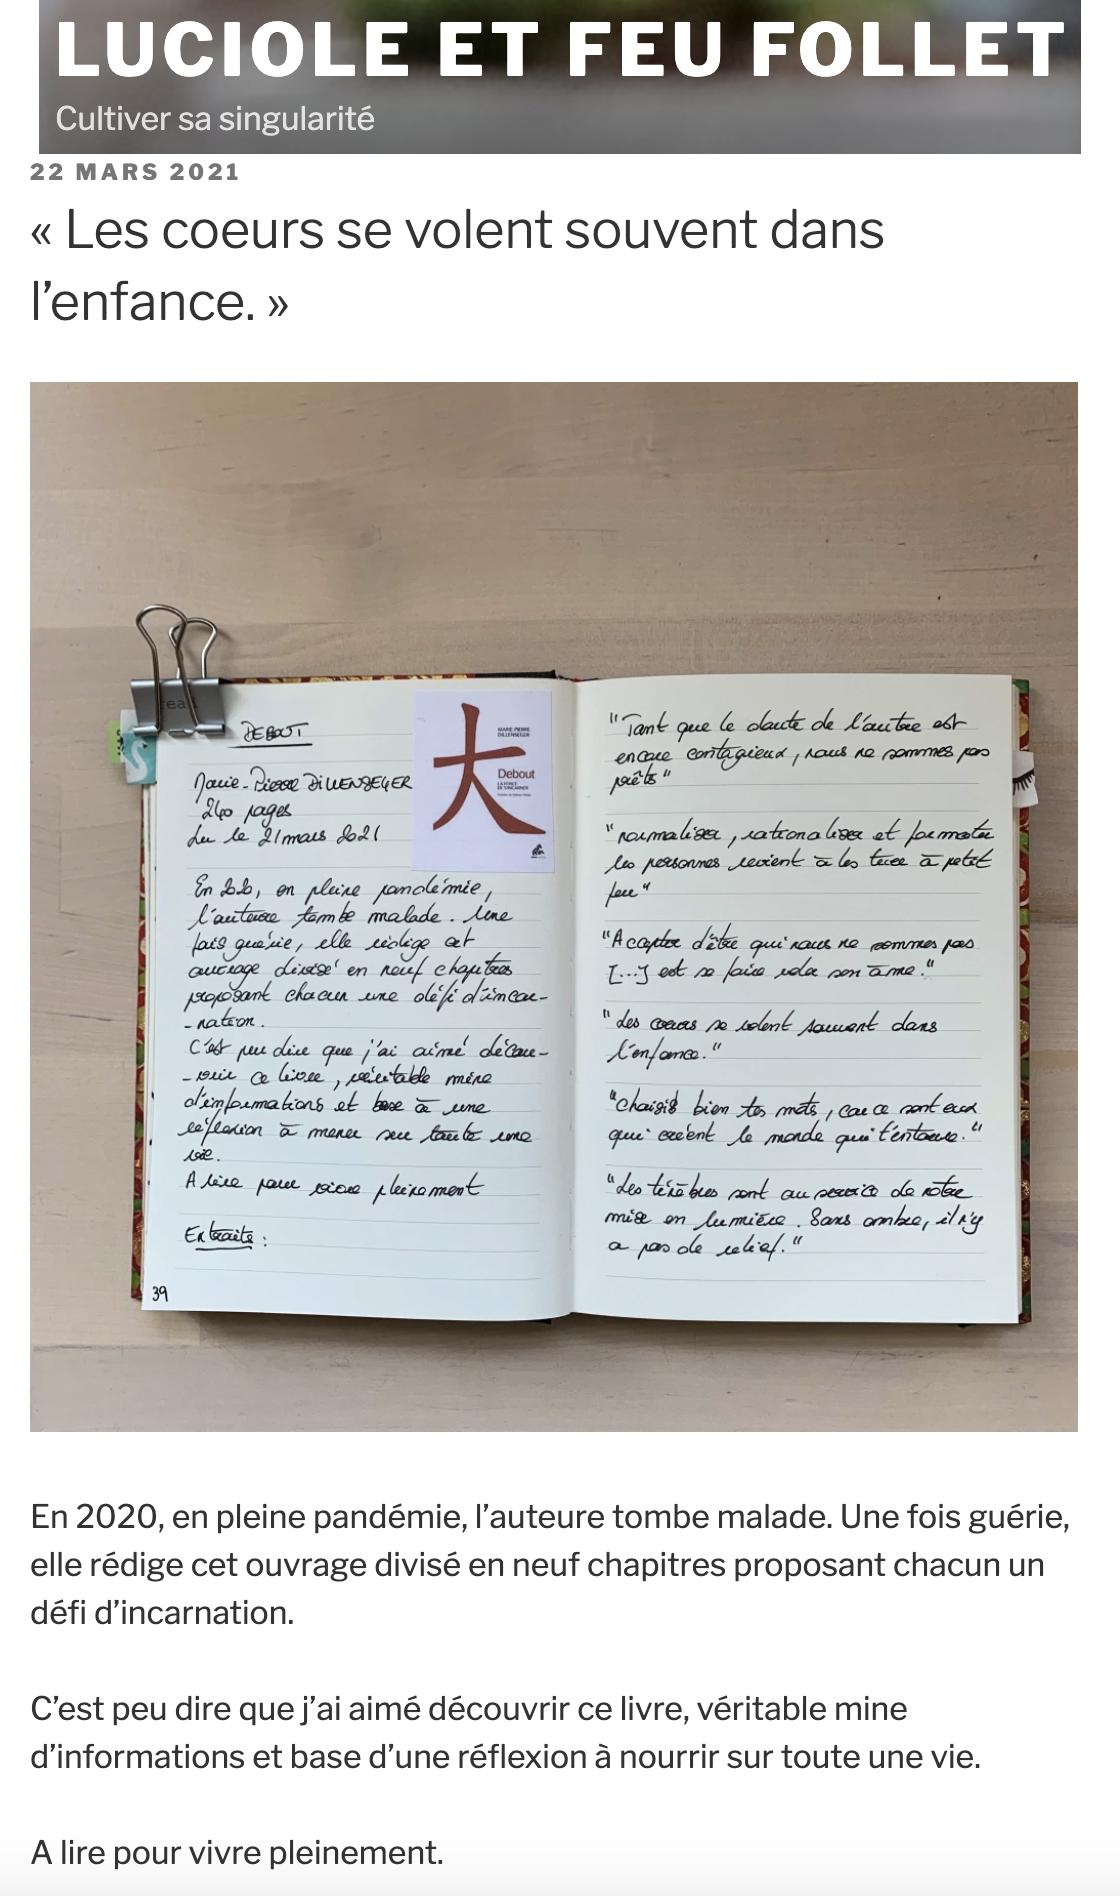 LUCIOLE ET FEU FOLLET
Cultiver sa singularité
22 MARS 2021
« Les coeurs se volent souvent dans
l’enfance. »
DEBOUT
Marie-Pierre DILLENSEGER
240 pages
Lu le 21 mars 2021
大
MARIE-PIERRE
DILLENSEGER
Debout
LA FORCE
DE S'INCARNER
En 2020, en pleine pandémie,
l'auteure tombe malade. Une
fois guérie, elle rédige cet
ouvrage divisé en neuf chapitres
proposant chacun une défi d'incar-
-nation.
C'est peu dire que j'ai aimé décou-
-vrir ce livre, véritable mine
d'informations et base à une
réflexion à mener sur toute une
vie.
A lire pour vivre pleinement
Extraits :
39
"Tant que le doute de l'autre est
encore contagieux, nous ne sommes pas
prêts"
"normaliser, rationaliser et formater
les personnes revient à les tuer à petit
feu"
"Accepter d'être qui nous ne sommes pas
[...] est se faire voler son âme."
"Les coeurs se volent souvent dans
l'enfance."
"Choisis bien tes mots, car ce sont eux
qui créent le monde qui t'entoure."
"Les ténèbres sont au service de notre
mise en lumière. Sans ombre, il n'y
a pas de relief."
En 2020, en pleine pandémie, l’auteure tombe malade. Une fois guérie,
elle rédige cet ouvrage divisé en neuf chapitres proposant chacun un
défi d’incarnation.
C’est peu dire que j’ai aimé découvrir ce livre, véritable mine
d’informations et base d’une réflexion à nourrir sur toute une vie.
A lire pour vivre pleinement.